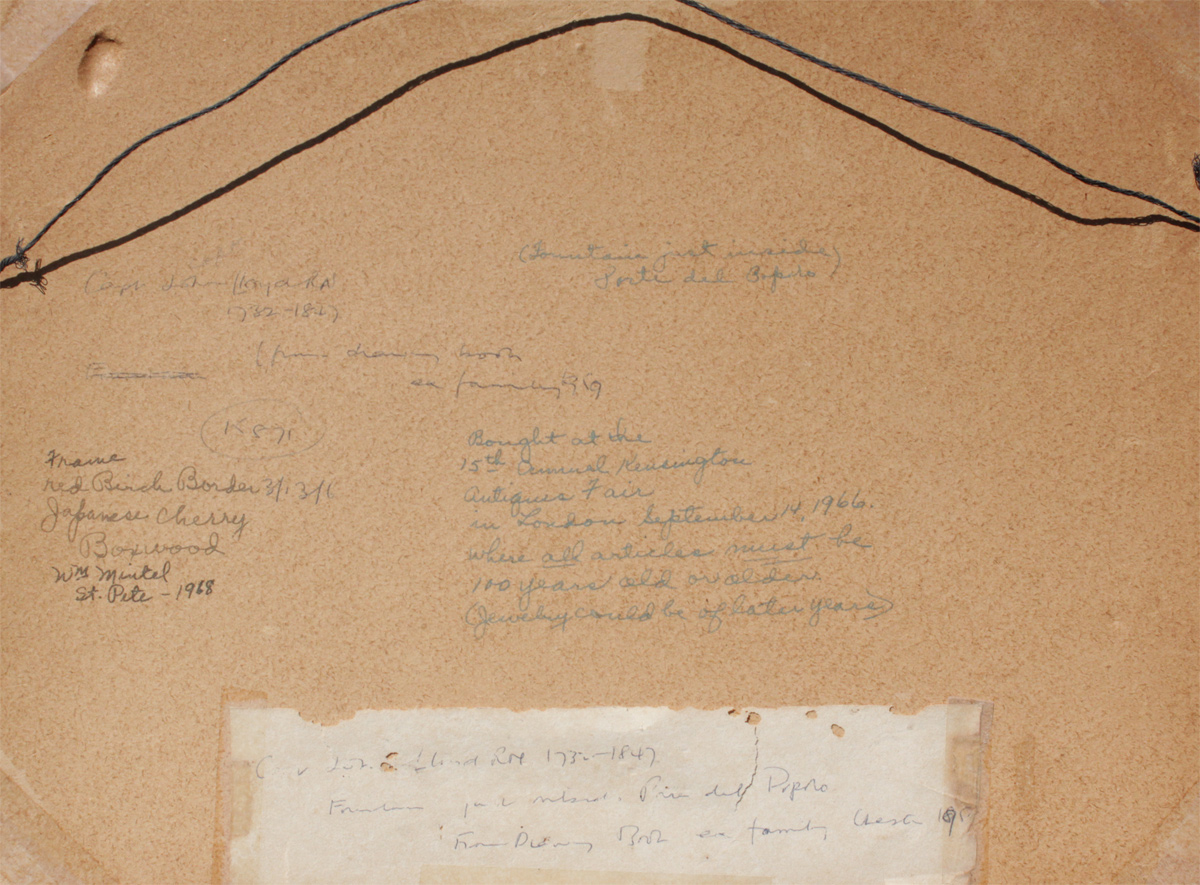 (Fountain just inside)
Porta del Popolo
Capt John Lloyd RN
1732-1847
(from drawing book
ex family
15871
Frame
red Birch Border 3/1 3/1
Japanese Cherry
Boxwood
Wm Mintel
St. Pete - 1968
Bought at the
15th Annual Kensington
Antiques Fair
in London September 14, 1966.
where all articles must be
100 years old or older.
(Jewelry could be of later years)
Lloyd RN 1732-1847
Fountain just inside. del Popolo
From Drawing Book ex family Chester